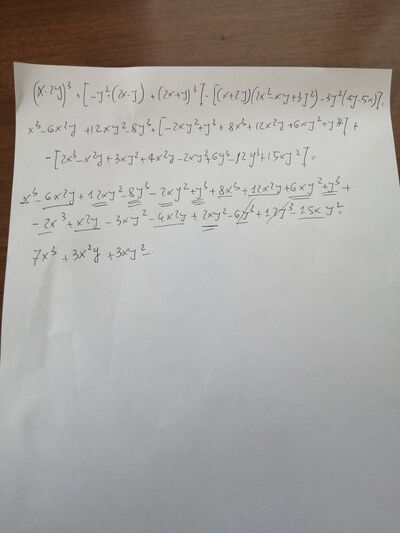 (x-2y)³ + [-y²·(2x-y) + (2x+y)³] - [(x+2y)(2x²-xy+3y²) - 3y²(4y-5x)] =
x³-6x²y +12xy²-8y³+[-2xy²+y³+8x³+12x²y+6xy²+y³]+
-[2x³-x²y+3xy²+4x²y-2xy²+6y³-12y³+15xy²]=
x³-6x²y+12xy²-8y³-2xy²+y³+8x³+12x²y+6xy²+y³+
-2x³+x²y-3xy²-4x²y+2xy²-6y³+12y³-15xy²=
7x³+3x²y+3xy²